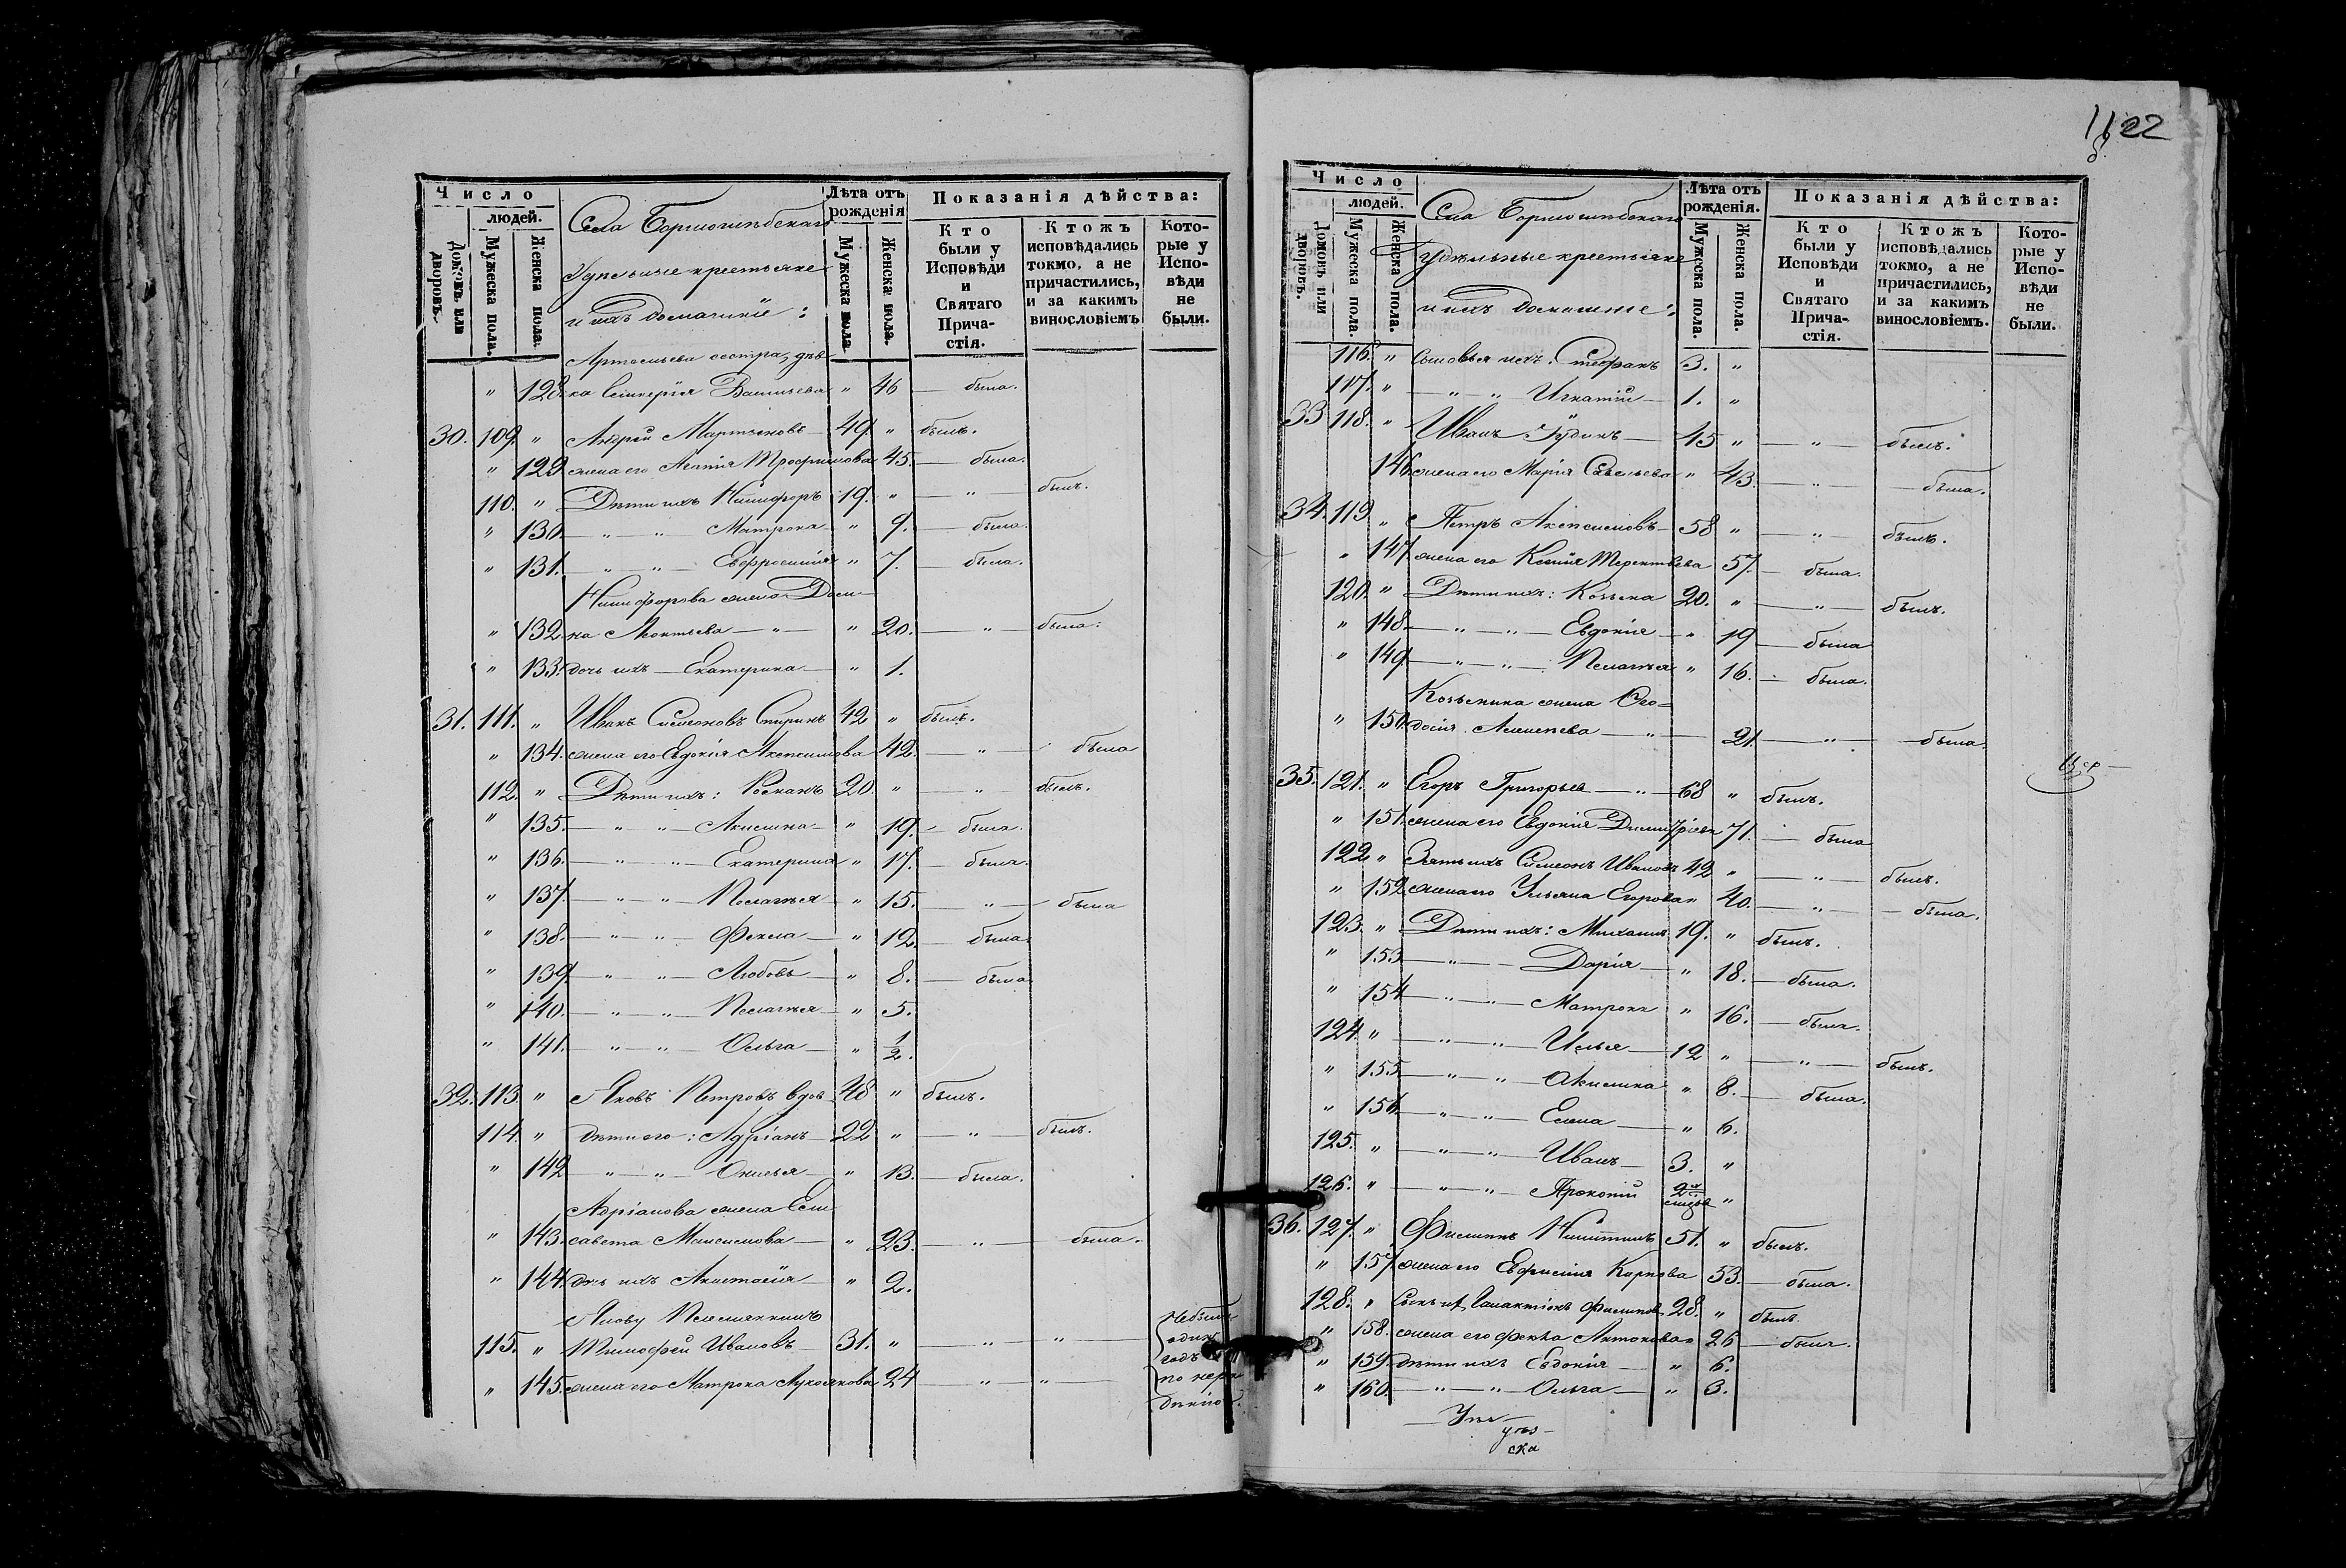 Число
людей.
Домовъ или дворовъ.
Мужеска пола.
Женска пола.
Села Борисоглѣбскаго
Удѣльные крестьяне
и ихъ домашніе:
Лѣта отъ рожденія
Мужеска пола
Женска пола.
Показанія дѣйства:
Кто были у Исповѣди и Святаго Причастія.
Ктожъ исповѣдались токмо, а не причастились, и за какимъ винословіемъ
Которые у Исповѣди не были.
сестра, дѣв-
" 128. ка Гликерія Васильева " 46 — была.
30. 109. " Андрей Мартыновъ — 49. " былъ.
" 129. жена его Агапія Трофимова 45. — была.
110. " Дѣти ихъ Никифоръ 19. " — " — былъ.
" 130. — " — " Матрона — " 9. — была.
" 131. — " — " — Евфросинія " 7. — была.
Никифорова жена Дом-
" 132. на Леонтьева — " — " 20. — " — была.
" 133. дочь ихъ — Екатерина — " 1.
31. 111. " Иванъ Симеоновъ Спиринъ 42 " былъ.
" 134. жена его Евдокія Акепсимова 42. — " — была
112. " Дѣти ихъ: Романъ 20. " — " — былъ.
" 135. — " — " — Акилина — " 19. — была.
" 136. — " — " — Екатерина " 17. — была.
" 137. — " — " — Пелагія — " 15. — " — была
" 138. — " — " — Фекла — " 12. — была.
" 139. — " — " — Любовь — " 8. — была
" 140. — " — " — Пелагія — " 5.
" 141. — " — " — Ольга — " 1/2.
32. 113. " Яковъ Петровъ вдов. 48 " былъ.
114. " Дѣти его: Адріанъ — 22 " — " — былъ.
" 142 — " — " — " 13. — была.
Адріанова жена Ели-
" 143. савета Максимова — " 23. — " — была.
" 144. дочь ихъ Анастасія — " 2.
Якову Племянникъ
115. " Тимофей Ивановъ — 31. " — " — " —
" 145. жена его Матрона Лукоянова 24 — " — " —
не были
одинъ
годъ
по нера-
дѣнію.
1122
Число
людей.
Домовъ или дворовъ.
Мужеска пола.
Женска пола.
Села Борисоглѣбскаго
Удѣльные крестьяне
и ихъ домашніе:
Лѣта отъ рожденія.
Мужеска пола.
Женска пола.
Показанія дѣйства:
Кто были у Исповѣди и Святаго Причастія.
Ктожъ исповѣдались токмо, а не причастились, и за какимъ винословіемъ.
Которые у Исповѣди не были.
116. " Сыновья ихъ: Стефанъ 3. "
117. " — " — " Игнатій — 1. "
33 118. " Иванъ Юдинъ — 45 " — " — былъ.
146. жена его Марія Савельева " 43. — " — была.
34. 119 " Петръ Акепсимовъ — 58 " — " — былъ.
" 147. жена его Ксенія Терентьева 57. — была.
120. " Дѣти ихъ: Козьма 20. " — " — былъ.
" 148. — " — " — Евдокія — " 19 — была
" 149. — " — " — Пелагія " 16. — была.
Козьмина жена Ѳео-
" 150. досія Алексѣева — " — 21. — " — была
35. 121. " Егоръ Григорьев — " — 68 " былъ.
" 151. жена его Евдокія Димитріева 71. — была
122. " Зять ихъ Симеонъ Ивановъ 42 " — " — былъ.
" 152. жена его Ульяна Егорова " 40. — " — была.
123. " Дѣти ихъ: Михаилъ 19. " былъ.
" 153 — " — Дарія — " 18. — была.
" 154 — " — " — Матрона " 16. — была.
124. " — " — " — Илья — 12 " — " — былъ.
" 155 — " — " — Акилина " 8. — была.
" 156. — " — " — Елена — " 6.
125. " — " — " Иванъ — 3. "
126. " — " — " — Прокопій "
36. 127. " Филиппъ Никитинъ 51. " былъ.
" 157. жена его Евфимія Карпова 53. — была.
128. " Сынъ их Галактіонъ Филиппов 28. " былъ.
" 158. жена его Фекла Антонова " 26 — была.
" 159. дѣти ихъ Евдокія — " 6.
" 160. — " — " — Ольга — " 3.